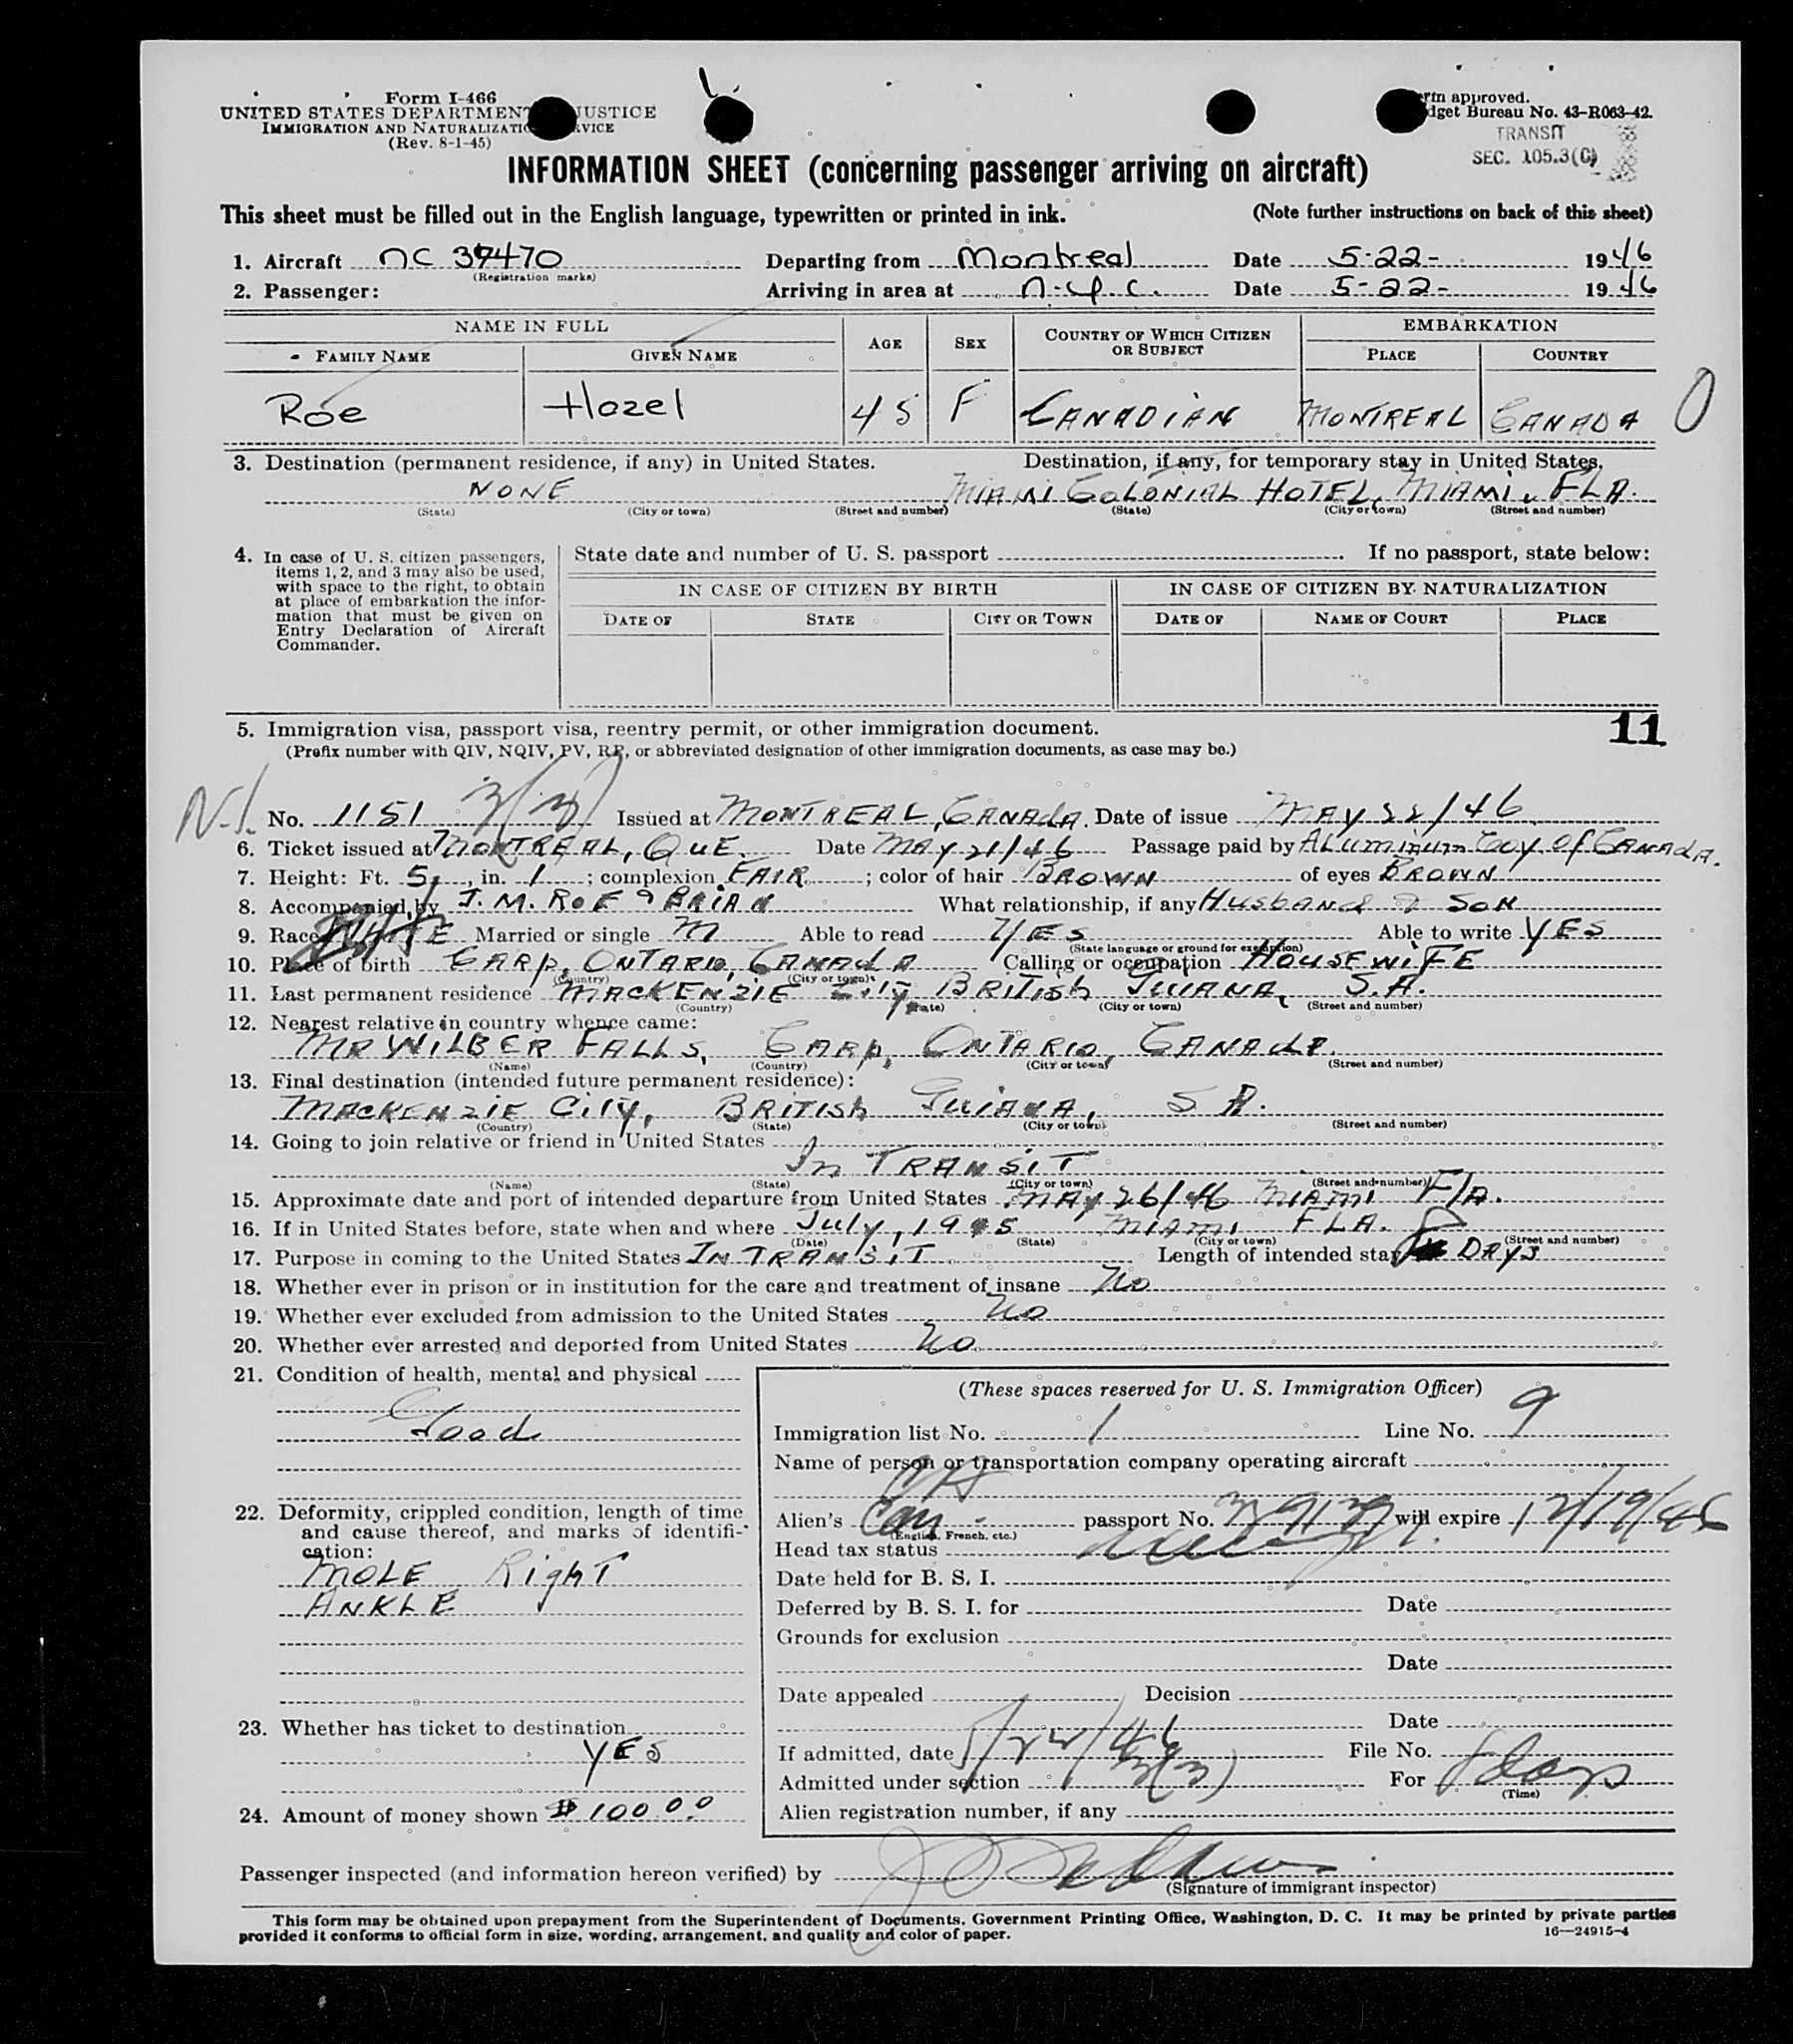 Form I-466
UNITED STATES DEPARTMENT JUSTICE
IMMIGRATION AND NATURALIZATION SERVICE
(Rev. 8-1-45)
Form approved.
Budget Bureau No. 43-R063-42.
TRANSIT
SEC. 105.3(C)
INFORMATION SHEET (concerning passenger arriving on aircraft)
This sheet must be filled out in the English language, typewritten or printed in ink. (Note further instructions on back of this sheet)
1. Aircraft NC 37470 Departing from Montreal Date 5-22- 1946
(Registration marks)
2. Passenger: Arriving in area at N.Y.C. Date 5-22- 1946
NAME IN FULL AGE SEX COUNTRY OF WHICH CITIZEN OR SUBJECT EMBARKATION
FAMILY NAME GIVEN NAME PLACE COUNTRY
Roe Hazel 45 F CANADIAN MONTREAL CANADA 0
3. Destination (permanent residence, if any) in United States. Destination, if any, for temporary stay in United States.
NONE MIAMI COLONIAL HOTEL, MIAMI, FLA.
(State) (City or town) (Street and number) (State) (City or town) (Street and number)
4. In case of U. S. citizen passengers, items 1, 2, and 3 may also be used, with space to the right, to obtain at place of embarkation the information that must be given on Entry Declaration of Aircraft Commander.
State date and number of U. S. passport . If no passport, state below:
IN CASE OF CITIZEN BY BIRTH IN CASE OF CITIZEN BY NATURALIZATION
DATE OF STATE CITY OR TOWN DATE OF NAME OF COURT PLACE
5. Immigration visa, passport visa, reentry permit, or other immigration document. 11
(Prefix number with QIV, NQIV, PV, RP, or abbreviated designation of other immigration documents, as case may be.)
N.I. No. 1151 3(3) Issued at MONTREAL, CANADA. Date of issue MAY 22/46
6. Ticket issued at MONTREAL, QUE. Date MAY 21/46 Passage paid by ALuminum Coy of CANADA.
7. Height: Ft. 5, in. 1; complexion FAIR; color of hair BROWN of eyes BROWN
8. Accompanied by J. M. ROE & BRIAN What relationship, if any Husband & SON
9. Race WHITE Married or single M Able to read YES Able to write YES
(State language or ground for exemption)
10. Place of birth CARP, ONTARIO, CANADA Calling or occupation HOUSEWIFE
(Country) (City or town)
11. Last permanent residence MACKENZIE City, BRITISH GUIANA, S.A.
(Country) (State) (City or town) (Street and number)
12. Nearest relative in country whence came:
MR WILBER FALLS, CARP, ONTARIO, CANADA.
(Name) (Country) (City or town) (Street and number)
13. Final destination (intended future permanent residence):
MACKENZIE City, BRITISH GUIANA, S A.
(Country) (State) (City or town) (Street and number)
14. Going to join relative or friend in United States
In TRANSIT
(Name) (State) (City or town) (Street and number)
15. Approximate date and port of intended departure from United States MAY 26/46 MIAMI Fla.
16. If in United States before, state when and where July, 1945 MIAMI FLA.
(Date) (State) (City or town) (Street and number)
17. Purpose in coming to the United States IN TRANSIT Length of intended stay 8 DAYS
18. Whether ever in prison or in institution for the care and treatment of insane No
19. Whether ever excluded from admission to the United States No
20. Whether ever arrested and deported from United States No
21. Condition of health, mental and physical
Good
22. Deformity, crippled condition, length of time and cause thereof, and marks of identification:
MOLE RIGHT
ANKLE
23. Whether has ticket to destination
YES
24. Amount of money shown $100.00
(These spaces reserved for U. S. Immigration Officer)
Immigration list No. 1 Line No. 9
Name of person or transportation company operating aircraft
Alien's Can - passport No. will expire 12/19/46
(English, French, etc.)
Head tax status
Date held for B. S. I.
Deferred by B. S. I. for Date
Grounds for exclusion
Date
Date appealed Decision
Date
If admitted, date 5/22/46 File No.
Admitted under section 3(3) For 8 days
(Time)
Alien registration number, if any
Passenger inspected (and information hereon verified) by
(Signature of immigrant inspector)
This form may be obtained upon prepayment from the Superintendent of Documents, Government Printing Office, Washington, D. C. It may be printed by private parties
provided it conforms to official form in size, wording, arrangement, and quality and color of paper. 16—24915-4